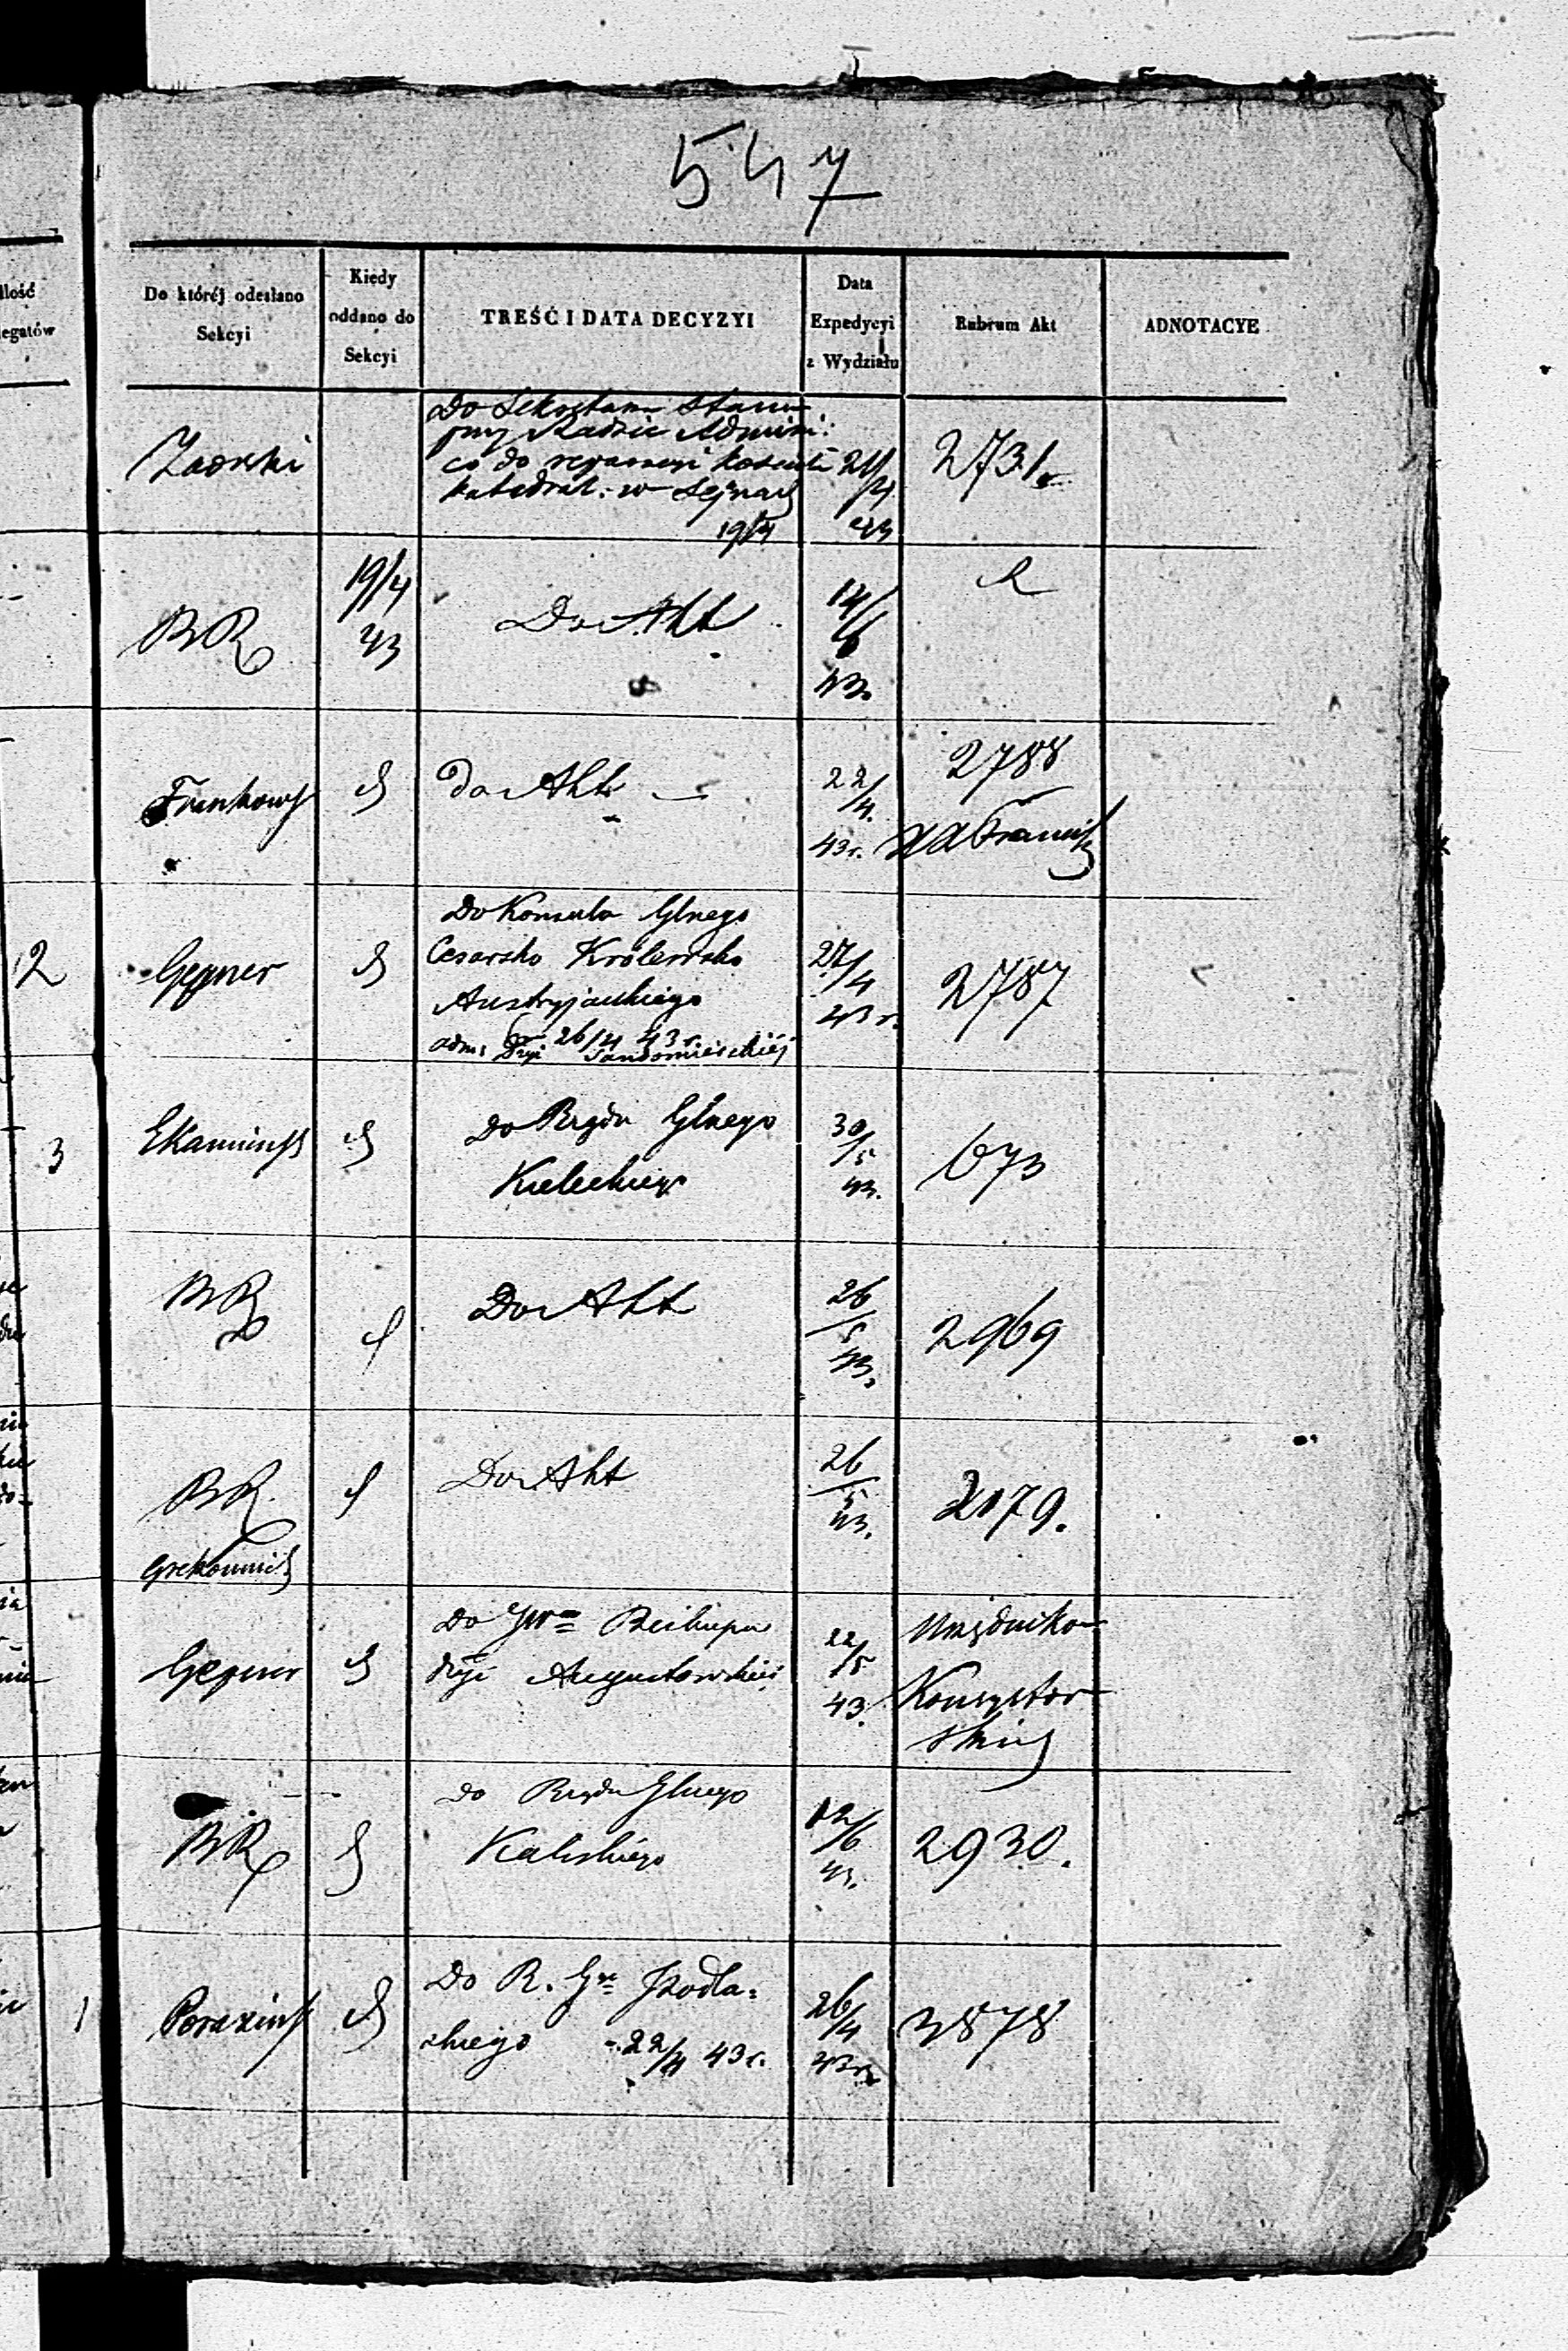 547
Ilość
legatów
Do któréj odesłano
Sekcyi
Kiedy
oddano do
Sekcyi
TREŚĆ I DATA DECYZYI
Data
Expedycyi
z Wydziału
Rubrum Akt
ADNOTACYE
Zaorski
Do Sekretarza Stanu
przy Radzie Admini:
co do reparacyi Kościoła
Katedral: w Sejnach
19/4
21/4
43
2731
BR
19/4
43
Do Akt
43.
Do Akt
22/4.
43r.
2788
2
Gepner
Do Konsula Glnego
Cesarsko Królewsko
Austryjackiego
adm: Dyi 26/4 43r.
Sandomierskiéj
27/4
43 r.
2787
3
EKamińsk
Do Rządu Glnego
Kieleckiego
30/5
43.
673
BR
Do Akt
26/5
43.
2969
BR
Do Akt
26/5
43.
2179.
Gepner
Do
Augustowskiéj
22/5
43.
Urzędników
Konsystor
skich
BR
do Rządu Glnego
Kaliskiego
12/6
43.
2930.
1
Porazińsk
Do R. Gn Podla:
skiego 22/4 43r.
26/4
43r
3878